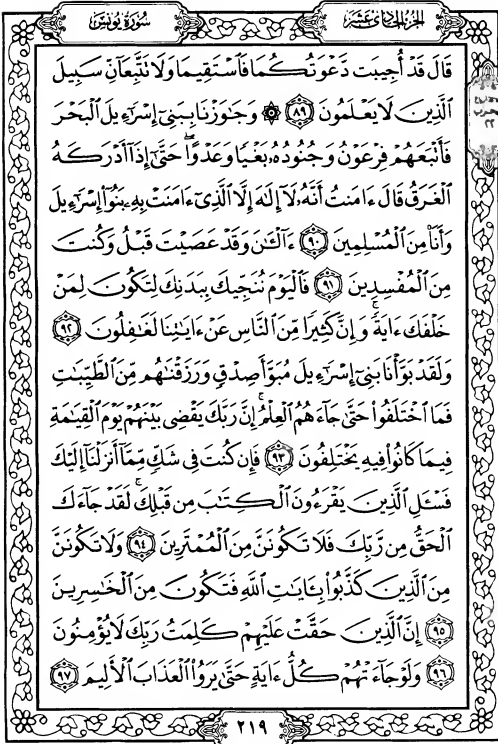 سُورَةُ يُونُسَ
الجُزْءُ الحَادِى عَشَرَ
قَالَ قَدْ أُجِيبَت دَّعْوَتُكُمَا فَٱسْتَقِيمَا وَلَا تَتَّبِعَآنِّ سَبِيلَ
ٱلَّذِينَ لَا يَعْلَمُونَ ﴿٨٩﴾ ۞ وَجَٰوَزْنَا بِبَنِىٓ إِسْرَٰٓءِيلَ ٱلْبَحْرَ
فَأَتْبَعَهُمْ فِرْعَوْنُ وَجُنُودُهُۥ بَغْيًا وَعَدْوًا ۖ حَتَّىٰٓ إِذَآ أَدْرَكَهُ
ٱلْغَرَقُ قَالَ ءَامَنتُ أَنَّهُۥ لَآ إِلَٰهَ إِلَّا ٱلَّذِىٓ ءَامَنَتْ بِهِۦ بَنُوٓا۟ إِسْرَٰٓءِيلَ
وَأَنَا۠ مِنَ ٱلْمُسْلِمِينَ ﴿٩٠﴾ ءَآلْـَٰٔنَ وَقَدْ عَصَيْتَ قَبْلُ وَكُنتَ
مِنَ ٱلْمُفْسِدِينَ ﴿٩١﴾ فَٱلْيَوْمَ نُنَجِّيكَ بِبَدَنِكَ لِتَكُونَ لِمَنْ
خَلْفَكَ ءَايَةً ۚ وَإِنَّ كَثِيرًا مِّنَ ٱلنَّاسِ عَنْ ءَايَٰتِنَا لَغَٰفِلُونَ ﴿٩٢﴾
وَلَقَدْ بَوَّأْنَا بَنِىٓ إِسْرَٰٓءِيلَ مُبَوَّأَ صِدْقٍ وَرَزَقْنَٰهُم مِّنَ ٱلطَّيِّبَٰتِ
فَمَا ٱخْتَلَفُوا۟ حَتَّىٰ جَآءَهُمُ ٱلْعِلْمُ ۚ إِنَّ رَبَّكَ يَقْضِى بَيْنَهُمْ يَوْمَ ٱلْقِيَٰمَةِ
فِيمَا كَانُوا۟ فِيهِ يَخْتَلِفُونَ ﴿٩٣﴾ فَإِن كُنتَ فِى شَكٍّ مِّمَّآ أَنزَلْنَآ إِلَيْكَ
فَسْـَٔلِ ٱلَّذِينَ يَقْرَءُونَ ٱلْكِتَٰبَ مِن قَبْلِكَ ۚ لَقَدْ جَآءَكَ
ٱلْحَقُّ مِن رَّبِّكَ فَلَا تَكُونَنَّ مِنَ ٱلْمُمْتَرِينَ ﴿٩٤﴾ وَلَا تَكُونَنَّ
مِنَ ٱلَّذِينَ كَذَّبُوا۟ بِـَٔايَٰتِ ٱللَّهِ فَتَكُونَ مِنَ ٱلْخَٰسِرِينَ
﴿٩٥﴾ إِنَّ ٱلَّذِينَ حَقَّتْ عَلَيْهِمْ كَلِمَتُ رَبِّكَ لَا يُؤْمِنُونَ
﴿٩٦﴾ وَلَوْ جَآءَتْهُمْ كُلُّ ءَايَةٍ حَتَّىٰ يَرَوُا۟ ٱلْعَذَابَ ٱلْأَلِيمَ ﴿٩٧﴾
٢١٩